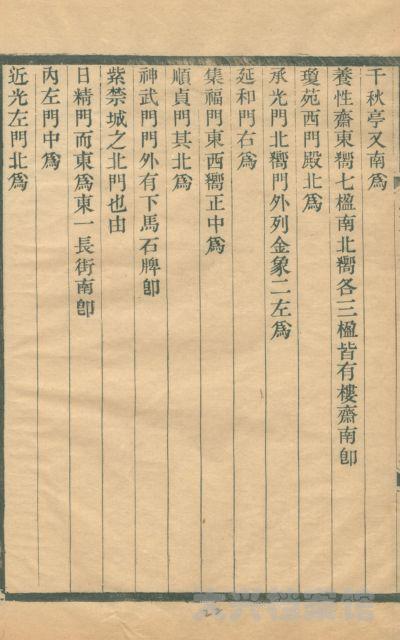 千秋亭又南爲
養性齋東嚮七楹南北嚮各三楹皆有樓齋南卽
瓊苑西門殿北爲
承光門北嚮門外列金象二左爲
延和門右爲
集福門東西嚮正中爲
順貞門其北爲
神武門門外有下馬石牌卽
紫禁城之北門也由
日精門而東爲東一長街南卽
內左門中爲
近光左門北爲
22